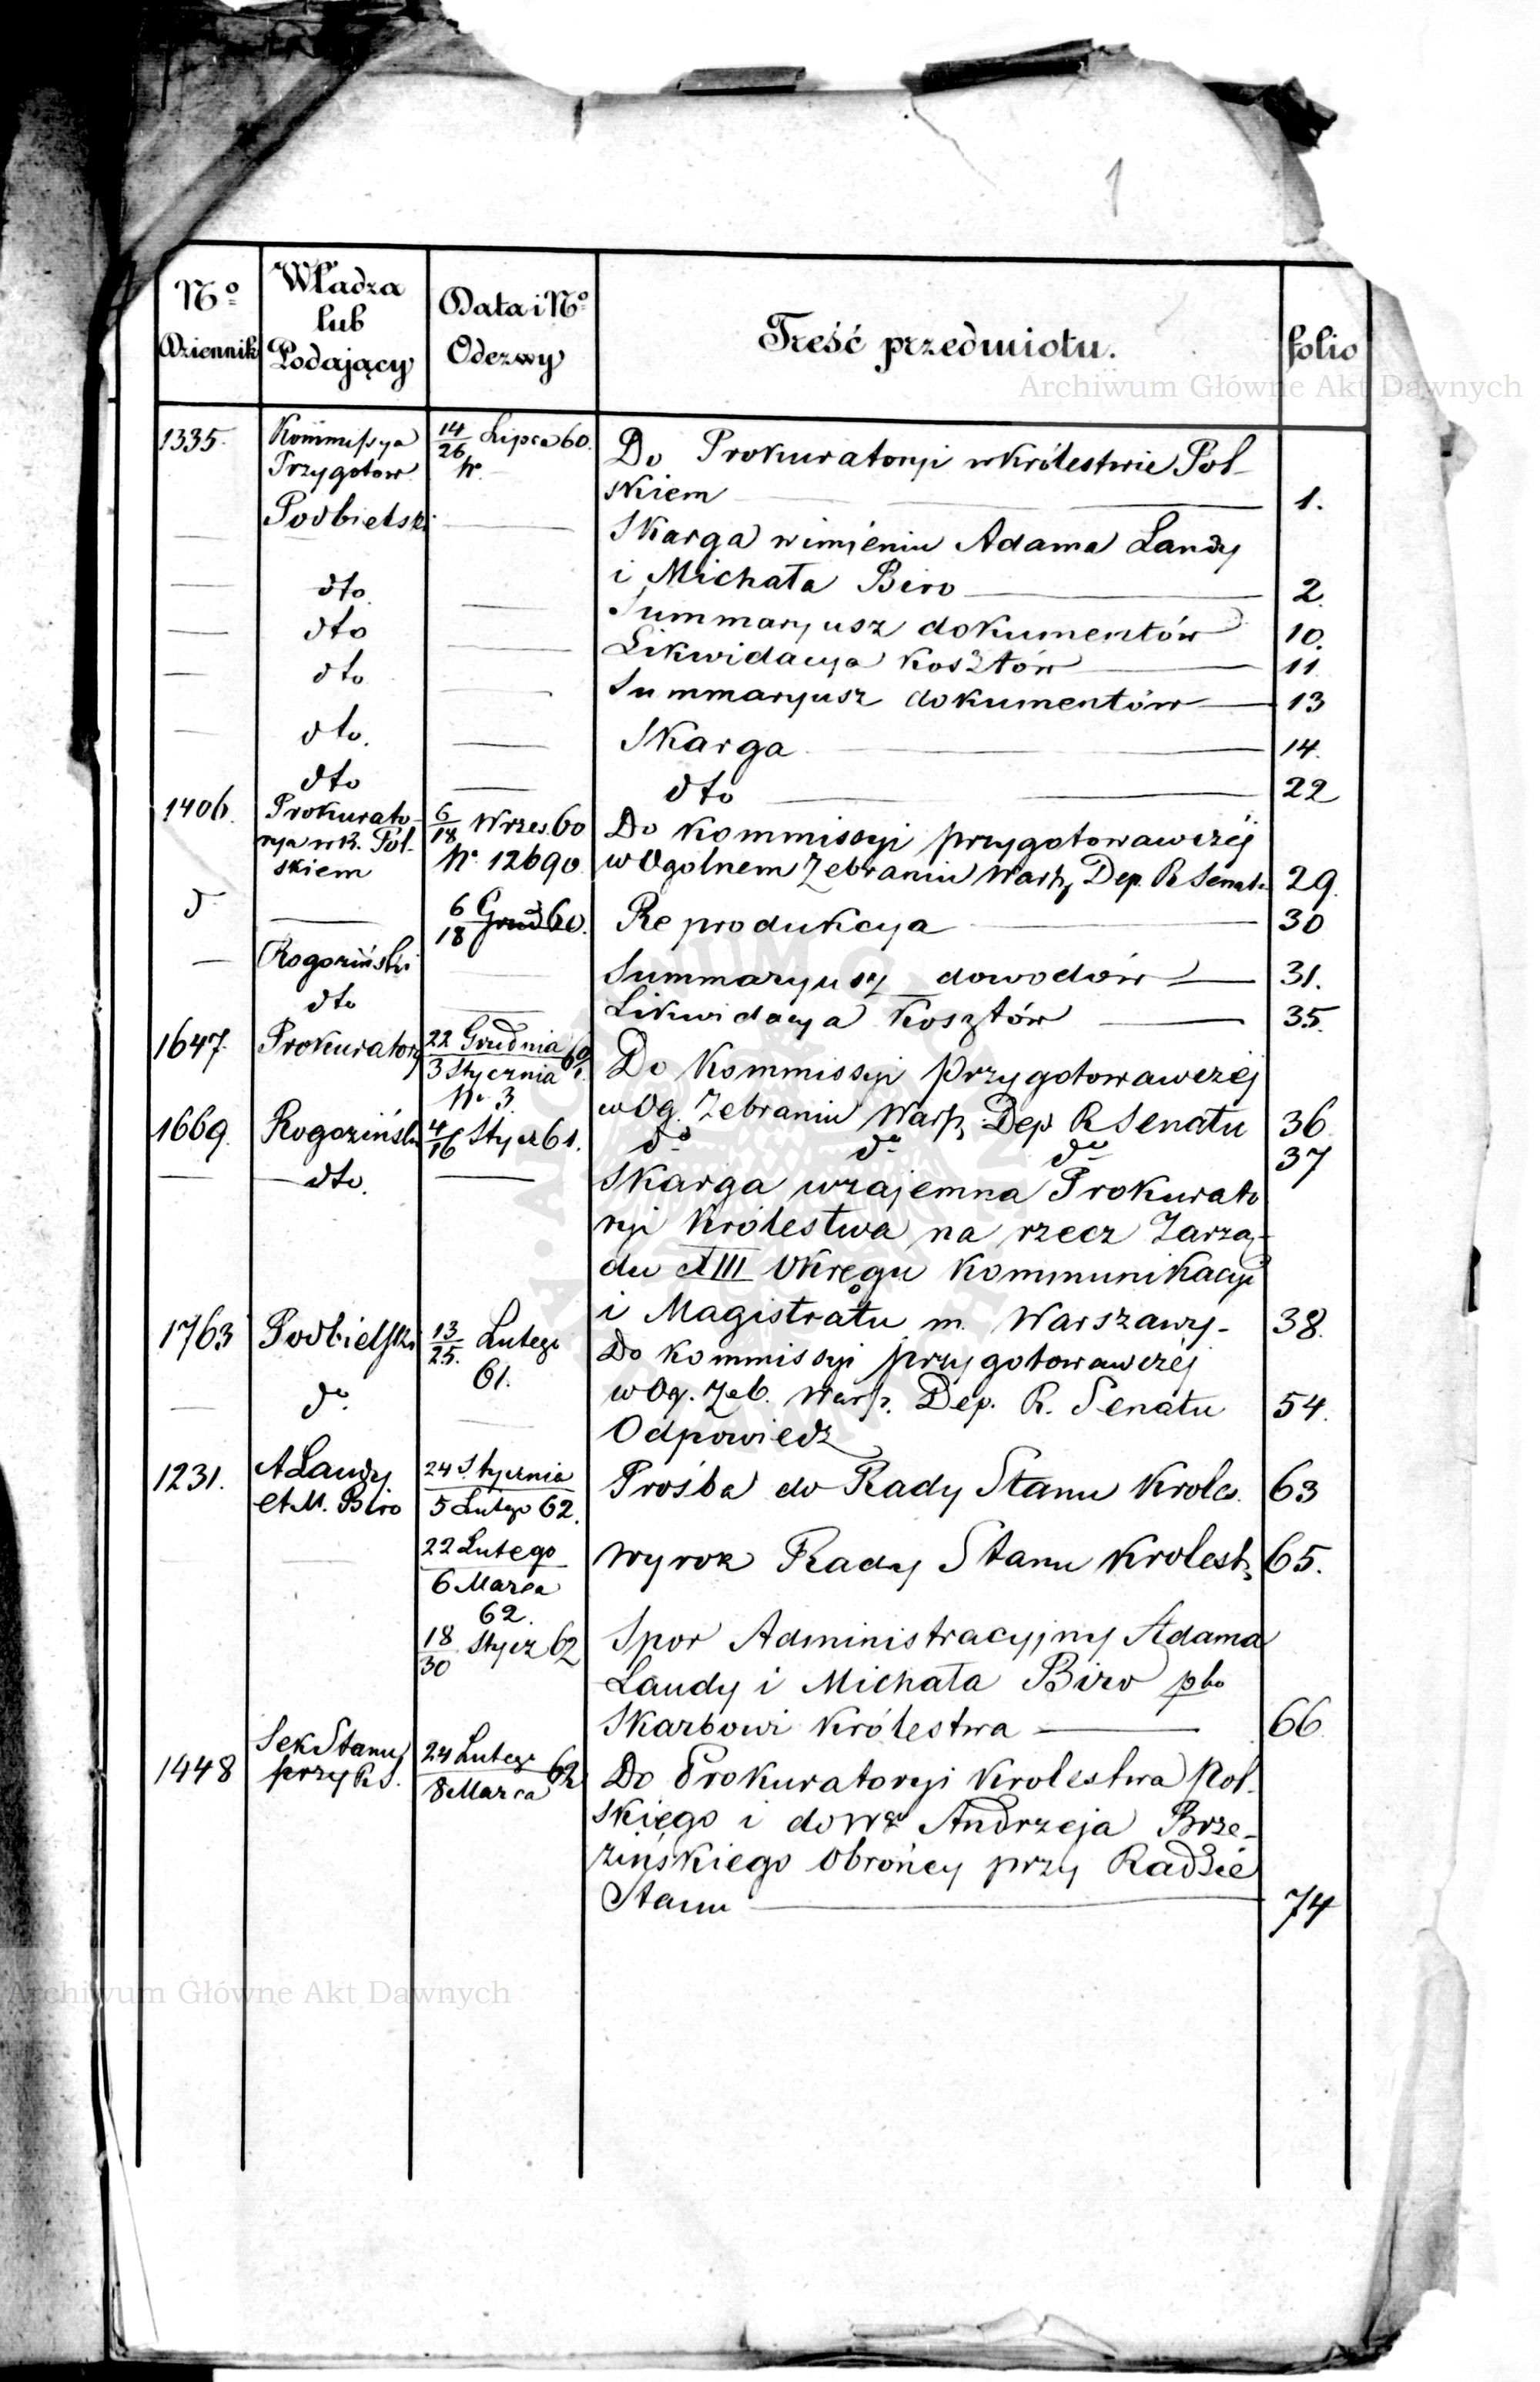 1
Nº Dziennik
Władza lub Podający
Data i Nº Odezwy
Treść przedmiotu.
folio
Archiwum Główne Akt Dawnych
1335. Kommissya 14/26 Lipca 60. Do Prokuratoryi w Królestwie Pol-
Przygotow. Nº — skiem — 1.
— Podbielski — Skarga w imieniu Adama Landy
i Michała Biro — 2.
— dto. — Summaryusz dokumentów 10.
— dto — Likwidacya kosztów — 11
— dto — Summaryusz dokumentów — 13
— dto. — Skarga — 14.
dto — dto — 22
1406. Prokurato- 6/18 Wrzes. 60 Do Kommissyi przygotowawczéj
rya w K. Pol- Nº 12690 w Ogólnem Zebraniu Warsz. Dep. R Senatu 29.
skiem
d — 6/18 Grud 60. Reprodukcya — 30
— Rogoziński — Summaryusz dowodów — 31.
dto — Likwidacya Kosztów — 35.
1647. Prokurator 22 Grudnia/3 Stycznia 60/1. Do Kommissyi przygotowawczéj
Nº 3. w Og. Zebraniu Warsz. Dep R Senatu 36
1669. Rogoziński 4/16 Stycz 61. dº dº dº 37
— dto. — Skarga wzajemna Prokurato
ryi Królestwa na rzecz Zarzą-
du XIII Okręgu Kommunikacyi
i Magistratu m. Warszawy- 38.
1763 Podbielski 13/25. Lutego Do Kommissyi przygotowawczej
61. w Og. Zeb. Warsz. Dep. R. Senatu 54.
— dº — Odpowiedz
1231. A Landy 24 Stycznia Prośba do Rady Stanu Króles. 63
et M. Biro 5 Lutego 62.
— — 22 Lutego Wyrok Rady Stanu Krolest. 65.
6 Marca
62.
18/30 Stycz 62 Spor Administracyjny Adama
Landy i Michała Biro pko
Skarbowi Królestwa — 66.
Sek Stanu
1448 przy R S. 24 Lutego/8 Marca 62 Do Prokuratoryi Krolestwa Pol-
skiego i do Wgo Andrzeja Brze-
zińskiego Obrońcy przy Radzie
Stanu — 74
Archiwum Główne Akt Dawnych